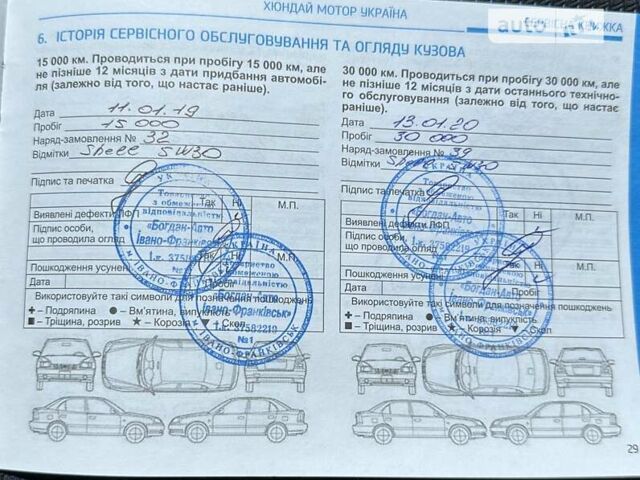 ХІОНДАЙ МОТОР УКРАЇНА
СЕРВІСНА КНИЖКА
6. ІСТОРІЯ СЕРВІСНОГО ОБСЛУГОВУВАННЯ ТА ОГЛЯДУ КУЗОВА
15 000 км. Проводиться при пробігу 15 000 км, але
не пізніше 12 місяців з дати придбання автомобі-
ля (залежно від того, що настає раніше).
Дата 11.01.19
Пробіг 15 000
Наряд-замовлення № 32
Відмітки Shell 5W30
Підпис та печатка
Так Ні М.П.
Виявлені дефекти ЛФП
Підпис особи,
що проводила огляд
Так Ні М.П.
Пошкодження усунені
Дата Пробіг
Використовуйте такі символи для позначення пошкоджень
+ - Подряпина ● - Вм'ятина, випуклість
■ - Тріщина, розрив ★ - Корозія ▼ - Скол
УКРАЇНА
Товариство
з обмеженою
відповідальністю
«Богдан-Авто
Івано-Франківськ»
і.к. 37582219
№1
м. ІВАНО-ФРАНКІВСЬК
30 000 км. Проводиться при пробігу 30 000 км, але
не пізніше 12 місяців з дати останнього технічно-
го обслуговування (залежно від того, що настає
раніше).
Дата 13.01.20
Пробіг 30 000
Наряд-замовлення № 39
Відмітки Shell 5W30
Підпис та печатка
Так Ні М.П.
Виявлені дефекти ЛФП
Підпис особи,
що проводила огляд
Так Ні М.П.
Пошкодження усунені
Дата Пробіг
Використовуйте такі символи для позначення пошкоджень
+ - Подряпина ● - Вм'ятина, випуклість
■ - Тріщина, розрив ★ - Корозія ▼ - Скол
29